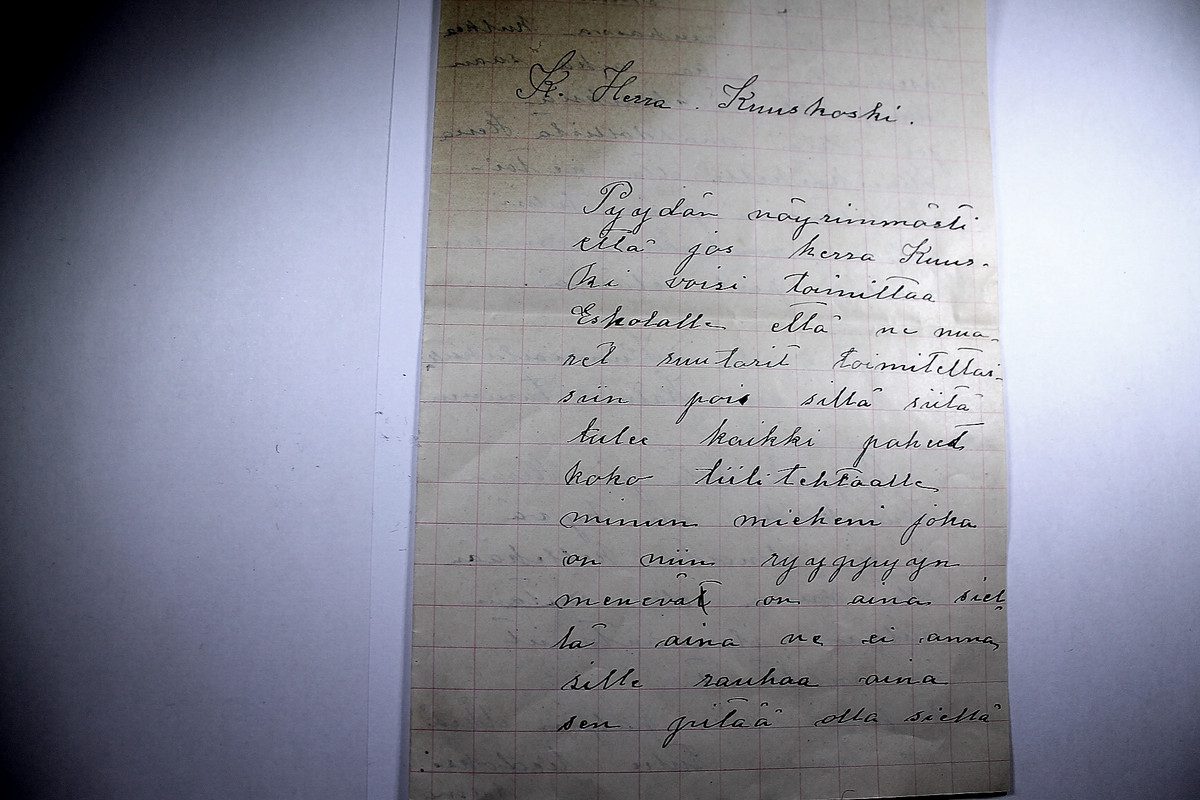 K. Herra. Kuuskoski.
Pyydän nöyrimmästi
että jos herra Kuus-
ki voisi toimittaa
Eskolalle että ne nua-
ret suutarit toimitettai-
siin pois sillä siitä
tulee kaikki pahuut
koko tiilitehtaalle
minun mieheni joka
on niin ryyppyyn
menevät on aina siel
lä aina ne ei anna
sille rauhaa aina
sen pitää olla siellä